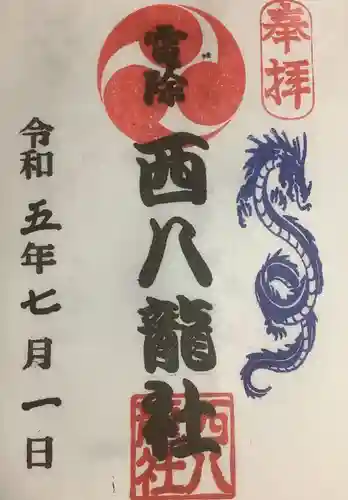 奉拝
雷除
西八龍社
西八
龍社
令和五年七月一日